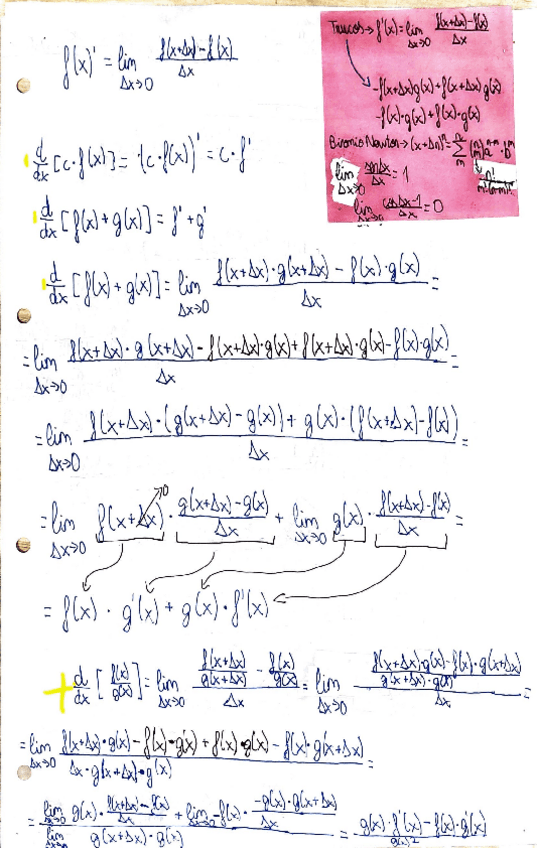 f(x)' = lim Δx→0 f(x+Δx)-f(x) / Δx
Trucos → f'(x) = lim Δx→0 f(x+Δx)-f(x) / Δx
-f(x+Δx)g(x)+f(x+Δx)g(x)
-f(x)·g(x)+f(x)·g(x)
Binomio Newton →
lim Δx→0 sen Δx / Δx = 1
lim Δx→0 cos Δx-1 / Δx = 0
d/dx [c·f(x)] = (c·f(x))' = c·f'
d/dx [f(x)+g(x)] = f'+g'
d/dx [f(x)+g(x)] = lim Δx→0 f(x+Δx)·g(x+Δx) - f(x)·g(x) / Δx =
= lim Δx→0 f(x+Δx)·g(x+Δx)-f(x+Δx)·g(x)+f(x+Δx)·g(x)-f(x)·g(x) / Δx =
= lim Δx→0 f(x+Δx)·(g(x+Δx)-g(x))+g(x)·(f(x+Δx)-f(x)) / Δx =
= lim Δx→0 f(x+Δx)→0 · g(x+Δx)-g(x) / Δx + lim Δx→0 g(x) · f(x+Δx)-f(x) / Δx =
= f(x) · g'(x) + g(x) · f'(x)
d/dx [f(x)/g(x)] = lim Δx→0 f(x+Δx)/g(x+Δx) - f(x)/g(x) / Δx = lim Δx→0 f(x+Δx)·g(x)-f(x)·g(x+Δx) / g(x+Δx)·g(x) / Δx =
= lim Δx→0 f(x+Δx)·g(x)-f(x)·g(x)+f(x)·g(x)-f(x)·g(x+Δx) / Δx·g(x+Δx)·g(x) =
= lim Δx→0 g(x)· f(x+Δx)-f(x) / Δx + lim Δx→0 -f(x)· -g(x)·g(x+Δx) / Δx / lim Δx→0 g(x+Δx)·g(x) = g(x)·f'(x)-f(x)·g'(x) / g(x)²